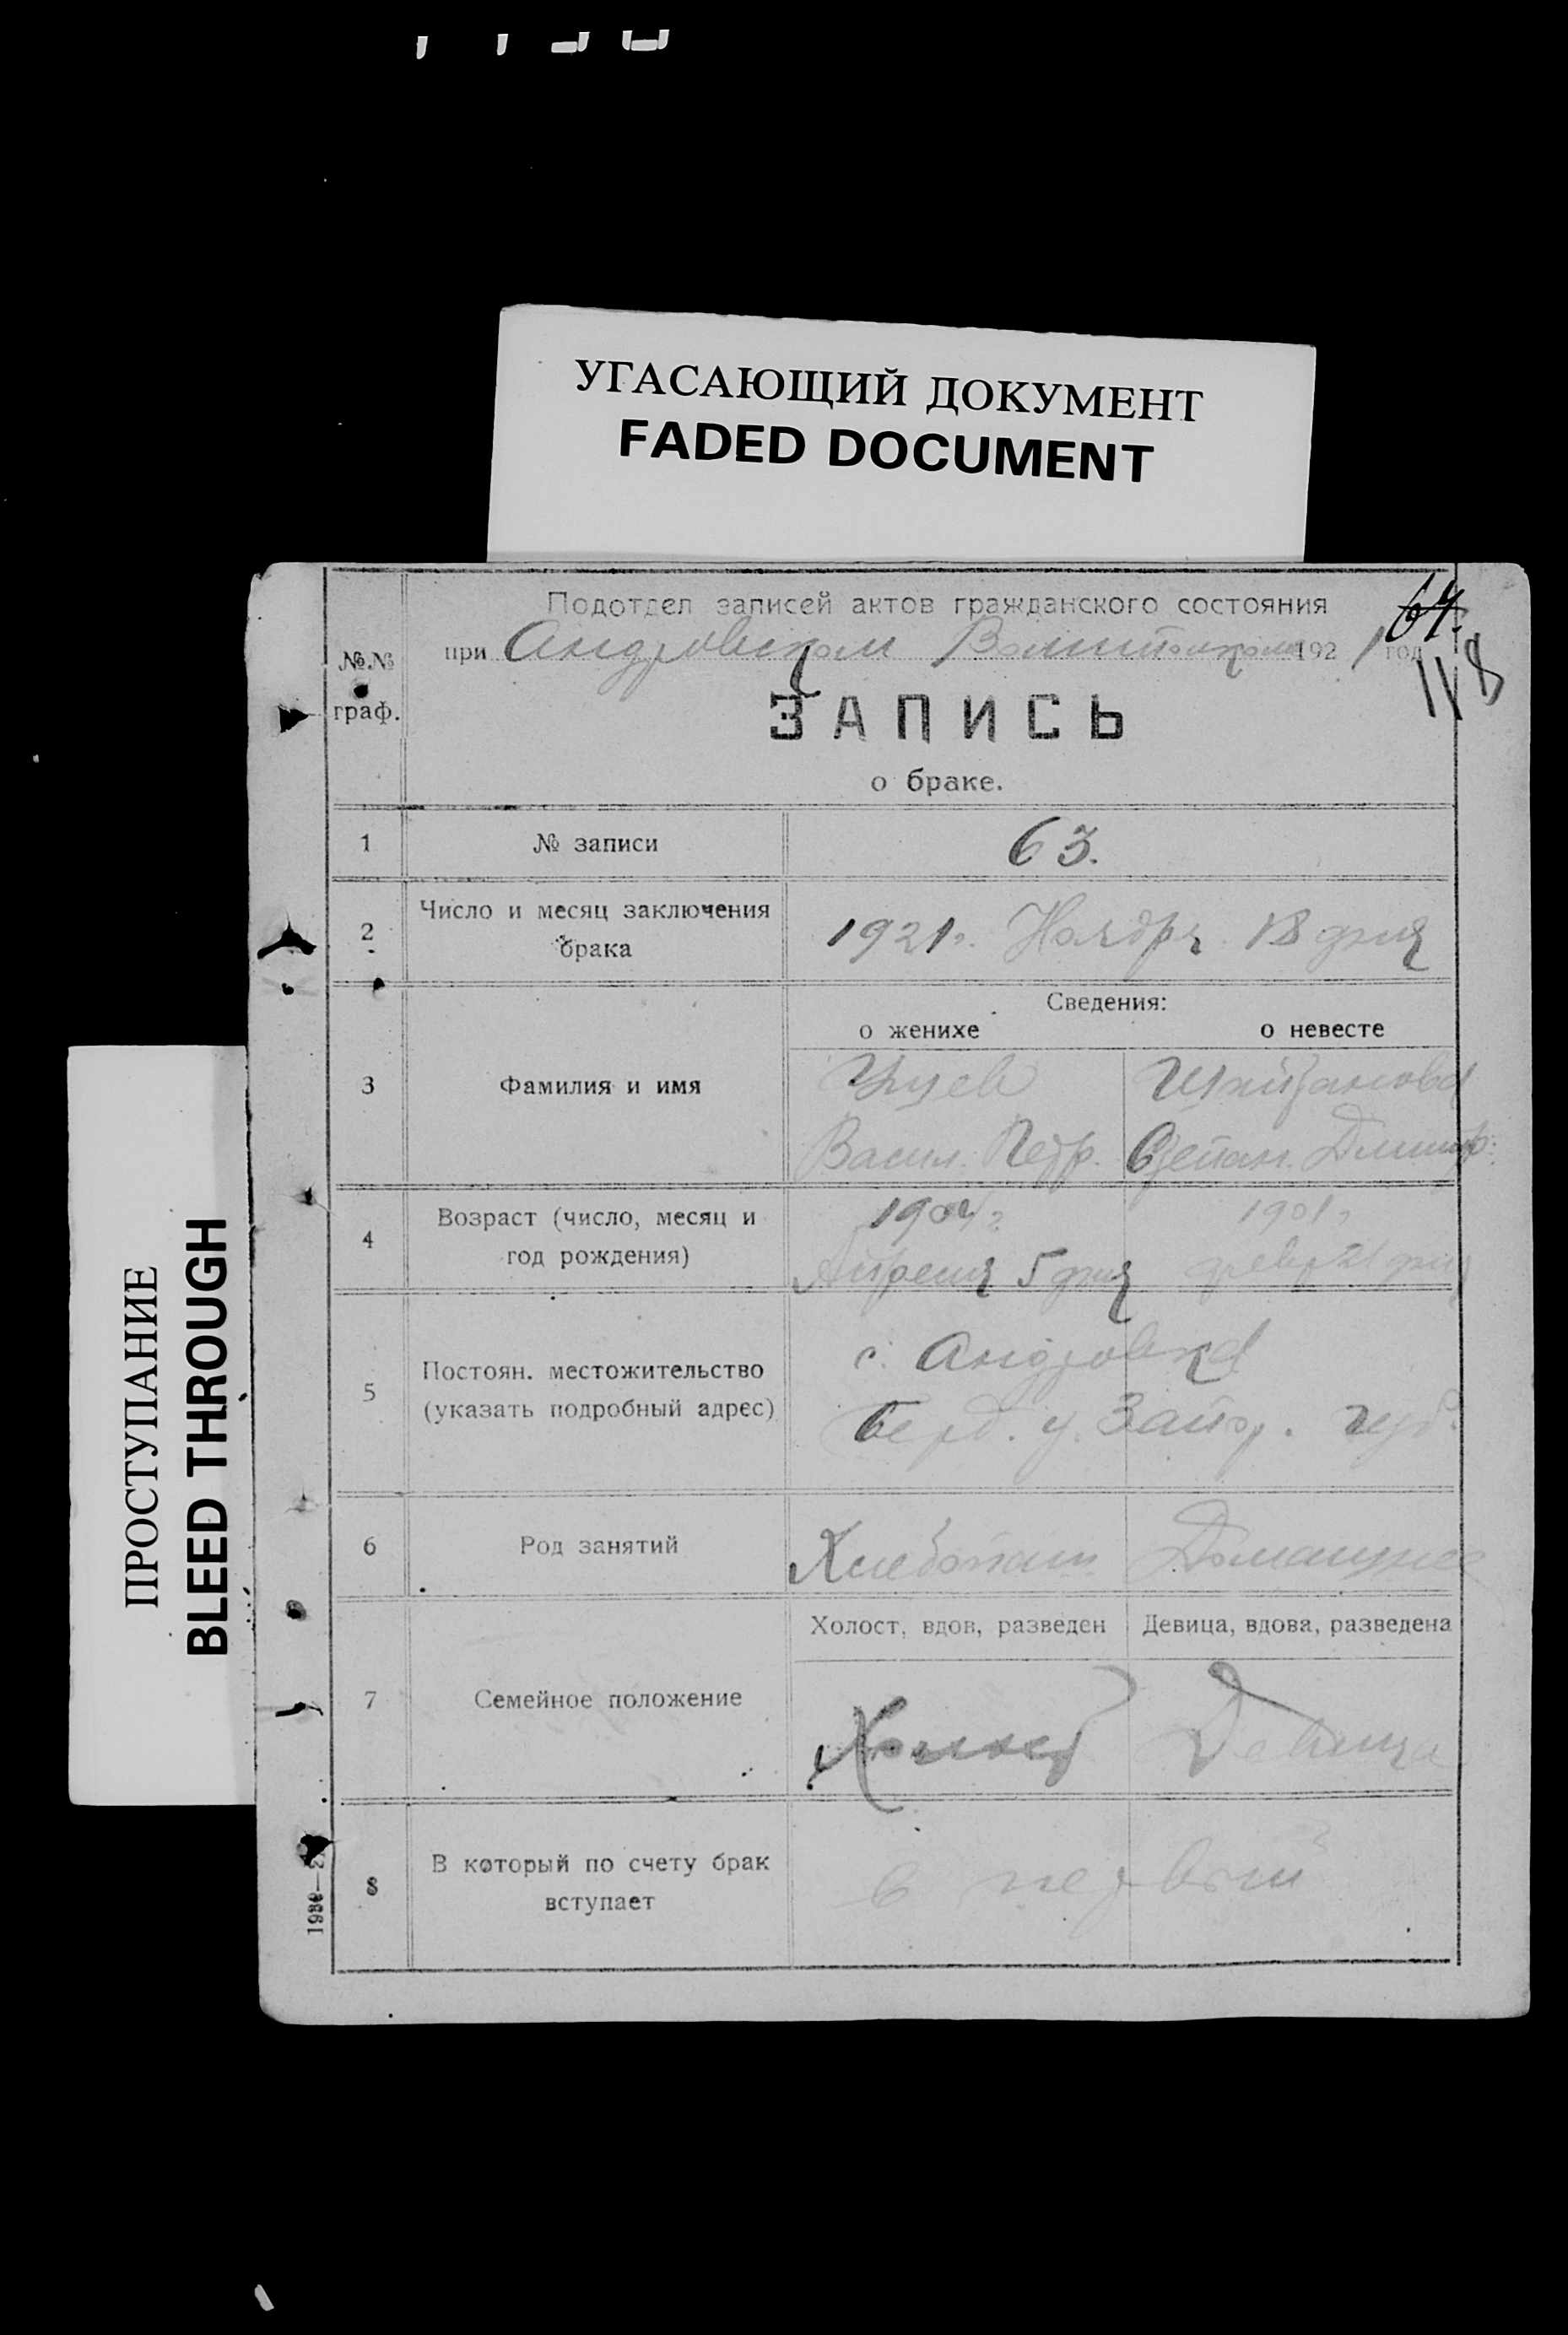 УГАСАЮЩИЙ ДОКУМЕНТ
FADED DOCUMENT
ПРОСТУПАНИЕ
BLEED THROUGH
64.
118
Подотдел записей актов гражданского состояния
при Андровском 1921 год
№.№ граф.
ЗАПИСЬ
о браке.
1 № записи 63.
2 Число и месяц заключения брака
1921 г. Ноября 18 дня
Сведения:
о женихе о невесте
3 Фамилия и имя
Васил. Петр. Степан. Дмитр.
4 Возраст (число, месяц и год рождения)
1901 г.
Апреля 5 дня
5 Постоян. местожительство (указать подробный адрес)
с. Андровка
Берд. у. Запор. губ.
6 Род занятий
Хлебопаш. Домашнее
Холост, вдов, разведен Девица, вдова, разведена
7 Семейное положение
Холост Девица
8 В который по счету брак вступает
в первый